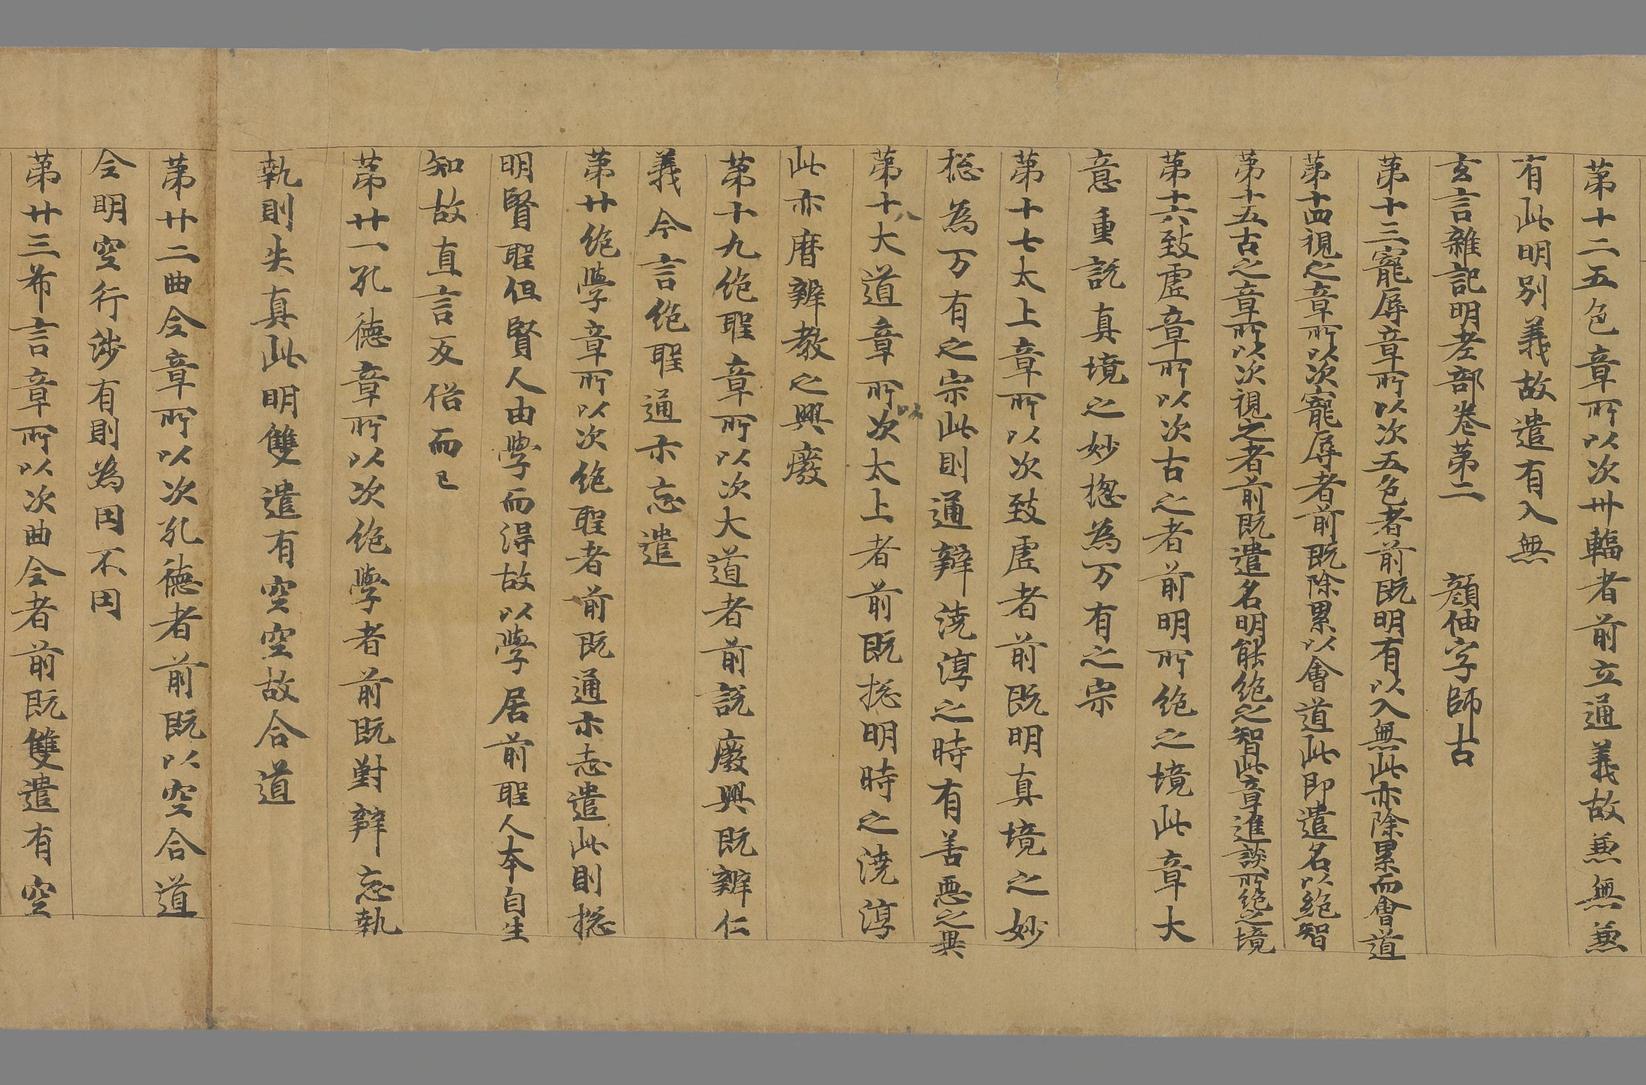 第十二五色章所以次卅輻者前立通義故兼無兼
有此明別義故遣有入無
玄言雜記明老部卷第二 顔伷字師古
第十三寵辱章所以次五色者前既明有以入無此亦除累而會道
第十四視之章所以次寵辱者前既除累以會道此即遣名以絶智
第十五古之章所以次視之者前既遣名明能絶之智此章進談所絶之境
第十六致虚章所以次古之者前明所絶之境此章大
意重説真境之妙揔為万有之宗
第十七太上章所以次致虚者前既明真境之妙
揔為万有之宗此則通辯澆淳之時有善惡之異
第十八大道章所以次太上者前既揔明時之澆淳
此亦曆辯教之興廢
第十九絶聖章所以次大道者前説廢興既辯仁
義今言絶聖通示忘遣
第廿絶學章所以次絶聖者前既通示忘遣此則揔
明賢聖但賢人由學而得故以學居前聖人本自生
知故直言反俗而已
第廿一孔徳章所以次絶學者前既對辯忘執
執則失真此明雙遣有空空故合道
第廿二曲全章所以次孔徳者前既以空合道
今明空行涉有則為因不因
第廿三希言章所以次曲全者前既雙遣有空